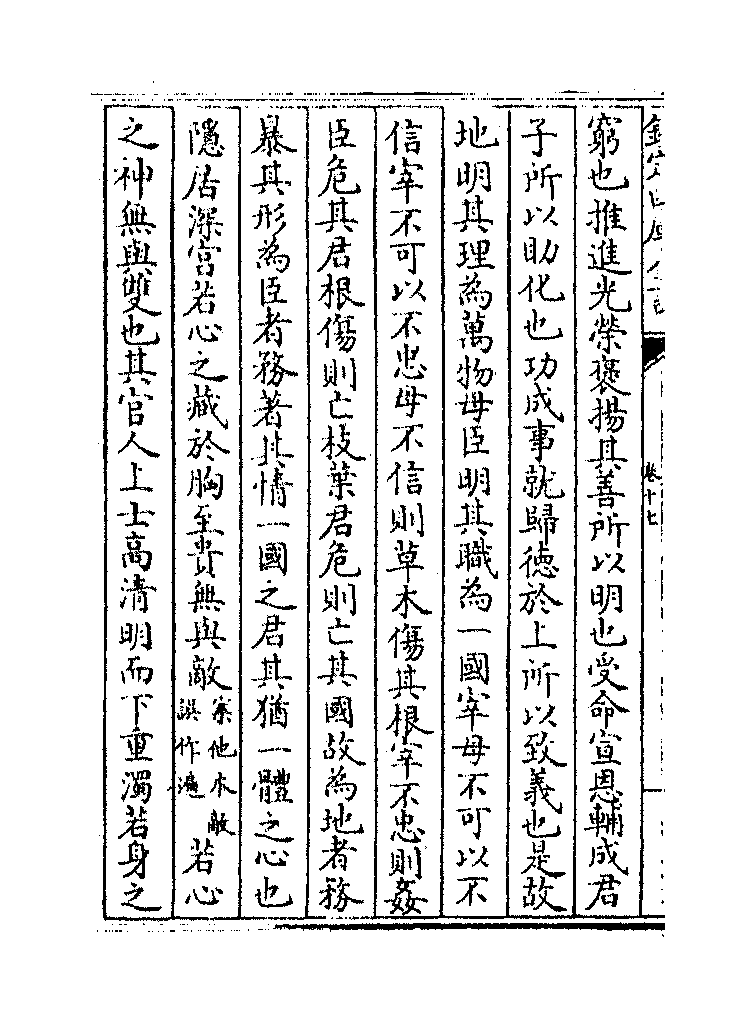 卷十七
窮也推進光榮褒揚其善所以明也受命宣恩輔成君
子所以助化也功成事就歸徳於上所以致義也是故
地明其理為萬物母臣明其職為一國宰母不可以不
信宰不可以不忠母不信則草木傷其根宰不忠則姦
臣危其君根傷則亡枝葉君危則亡其國故為地者務
暴其形為臣者務著其情一國之君其猶一體之心也
隱居深宫若心之藏於胸至貴無與敵案他本敵誤作適若心
之神無與雙也其官人上士髙清明而下重濁若身之